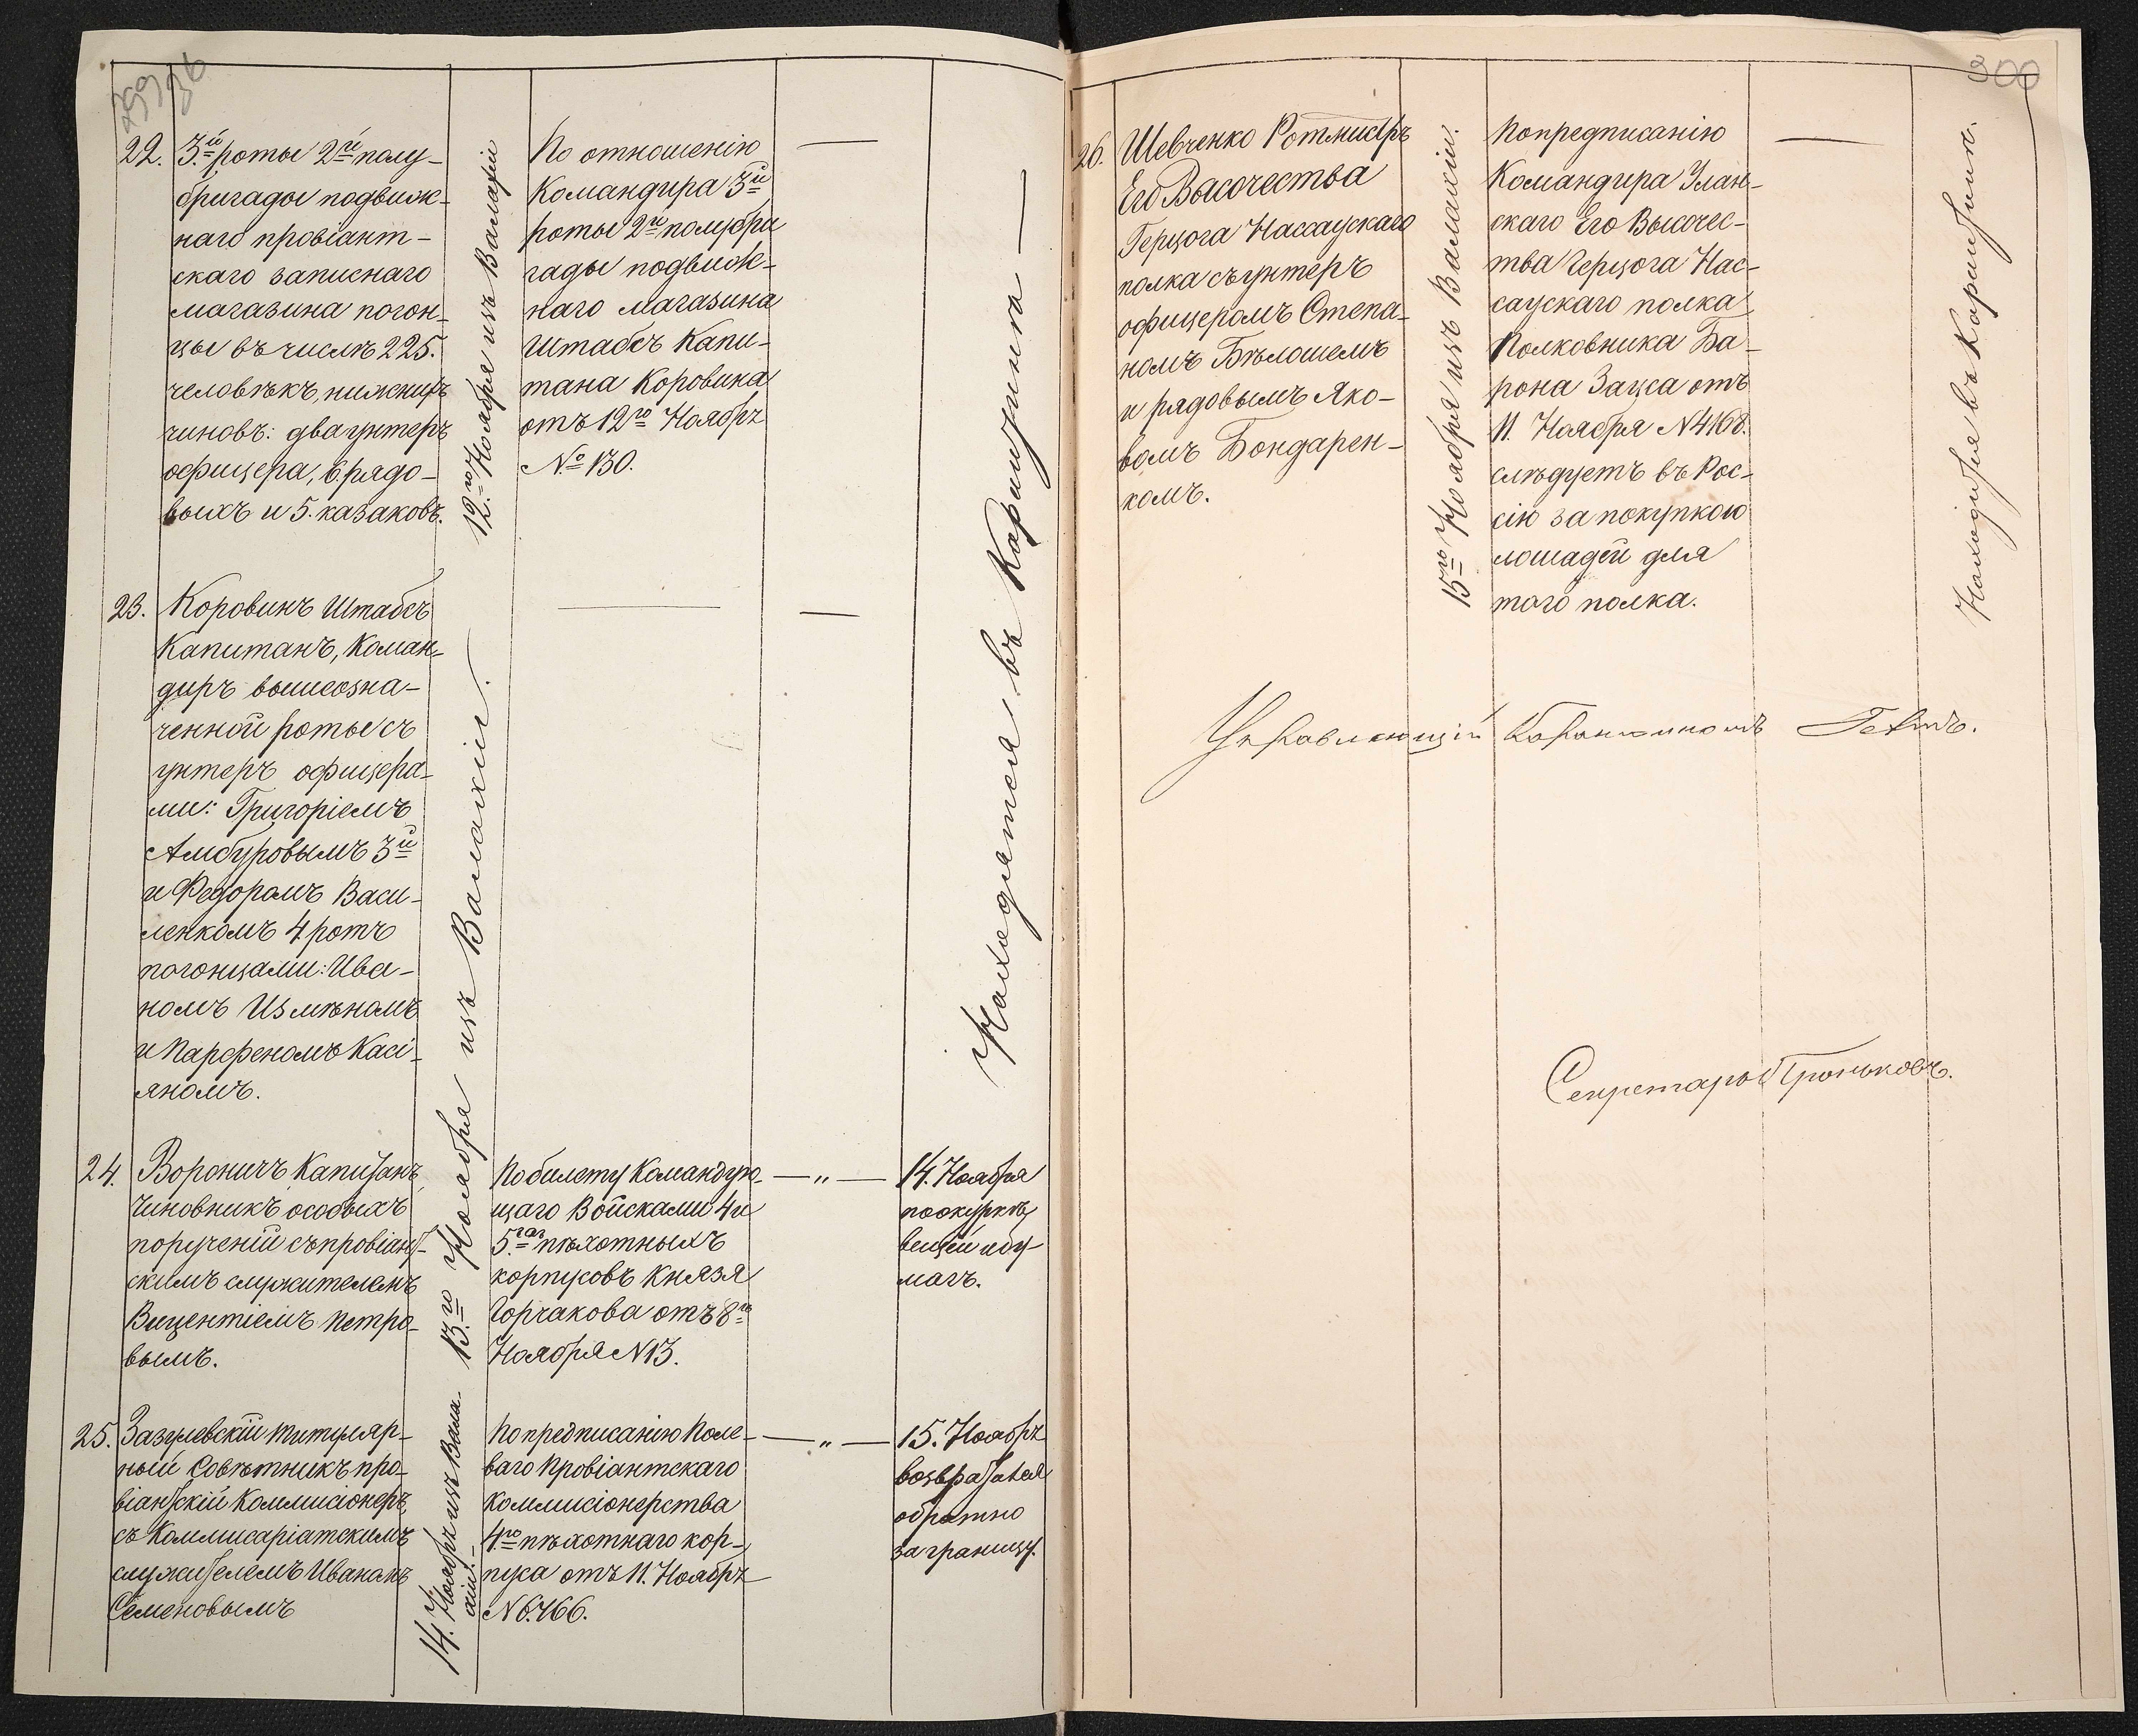 22.
3й роты 2й полу-
бригады подвиж-
наго провіант-
скаго запиСнаго
магазина погон-
цы въ числѣ 225.
человѣкъ, нижнихъ
чиновъ: два унтеръ
офицера, 6. рядо-
выхъ и 5. казаковъ.
12.го Ноября изъ Валахіи
По отношенію
Командира 3й
роты 2й полубри
гады подвиж-
наго магазина
Штабсъ Капи-
тана Коровина
отъ 12го Ноября
№ 130.
—
23.
Коровинъ Штабсъ
Капитанъ, Коман-
диръ вышеозна-
ченной роты съ
унтеръ офицера-
ми: Григоріемъ
Амбуровымъ 3й
и Федоромъ Васи-
ленкомъ 4 ротъ
погонцами: Ива-
номъ Измѣномъ
и Парфеномъ Касі-
яномъ.
13.го Ноября изъ Валахіи.
—
—
Находятся въ Карантинѣ —
24.
Вороничъ Капитанъ
Чиновникъ особыхъ
порученій съ провіант-
скимъ служителемъ
Вицентіемъ Петро-
вымъ.
По билету Командую-
щаго Войсками 4 и
5.го пѣхотныхъ
корпусовъ Князя
Горчакова отъ 8го
Ноября N 13.
— " —
14. Ноября
по окуркѣ
вещей и бу-
магъ.
25.
Зазулевскій титуляр-
ный Совѣтникъ про-
віантскій Коммисіонеръ
съ Коммисаріатскимъ
служителемъ Иваномъ
Семеновымъ
14. Ноября изъ Вала-
хіи.
По предписанію Поле-
ваго Провіантскаго
Коммисіонерства
4го пѣхотнаго кор-
пуса отъ 11. Ноября
N 6.466.
— " —
15. Ноября
возвратился
обратно
за границу.
300
26.
Шевченко Ротмистръ
Его Высочества
Герцога Нассаускаго
полка съ унтеръ
офицеромъ Степа-
номъ Бѣлошемъ
и рядовымъ Яко-
вомъ Бондарен-
комъ.
15го Ноября изъ Валахіи.
По предписанію
Командира Улан-
скаго Его Высочес-
тва Герцога Нас-
саускаго полка
Полковника Ба-
рона Зацса отъ
11. Ноября N 4168.
слѣдуетъ въ Рос-
сію за покупкою
лошадей для
того полка.
—
Находится въ Карантинѣ.
Управляющій Карантиномъ
Секретарь